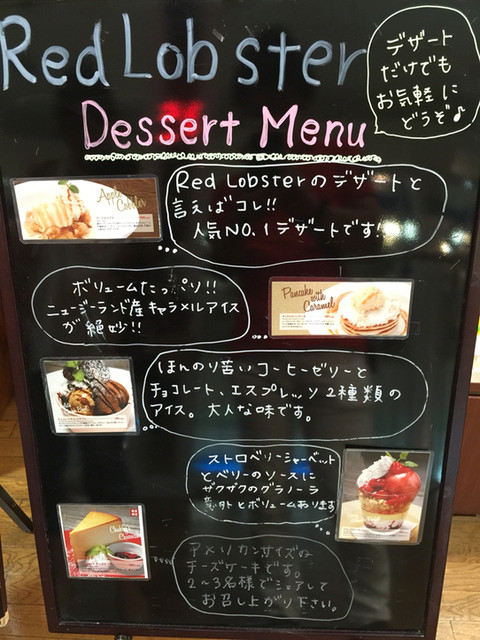 Red Lobster
デザート
だけでも
お気軽に
どうぞ♪
Dessert Menu
Apple
Cobbler
Red Lobsterのデザートと
言えばコレ!!
人気NO.1デザートです!!
ボリュームたっぷり!!
ニュージーランド産キャラメルアイス
が絶妙!!
Pancake
with
Caramel
ほんのり苦いコーヒーゼリーと
チョコレート、エスプレッソ2種類の
アイス。大人な味です。
ストロベリーシャーベット
とベリーのソースに
ザクザクのグラノーラ
とボリュームあります
アメリカンサイズの
チーズケーキです。
2〜3名様でシェアして
お召し上がり下さい。